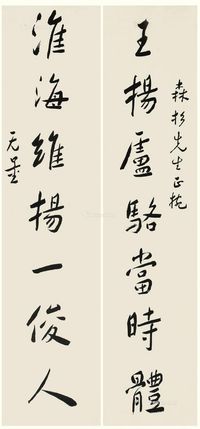 森杉先生正
王揚盧駱當時體
淮海維揚一俊人
无量